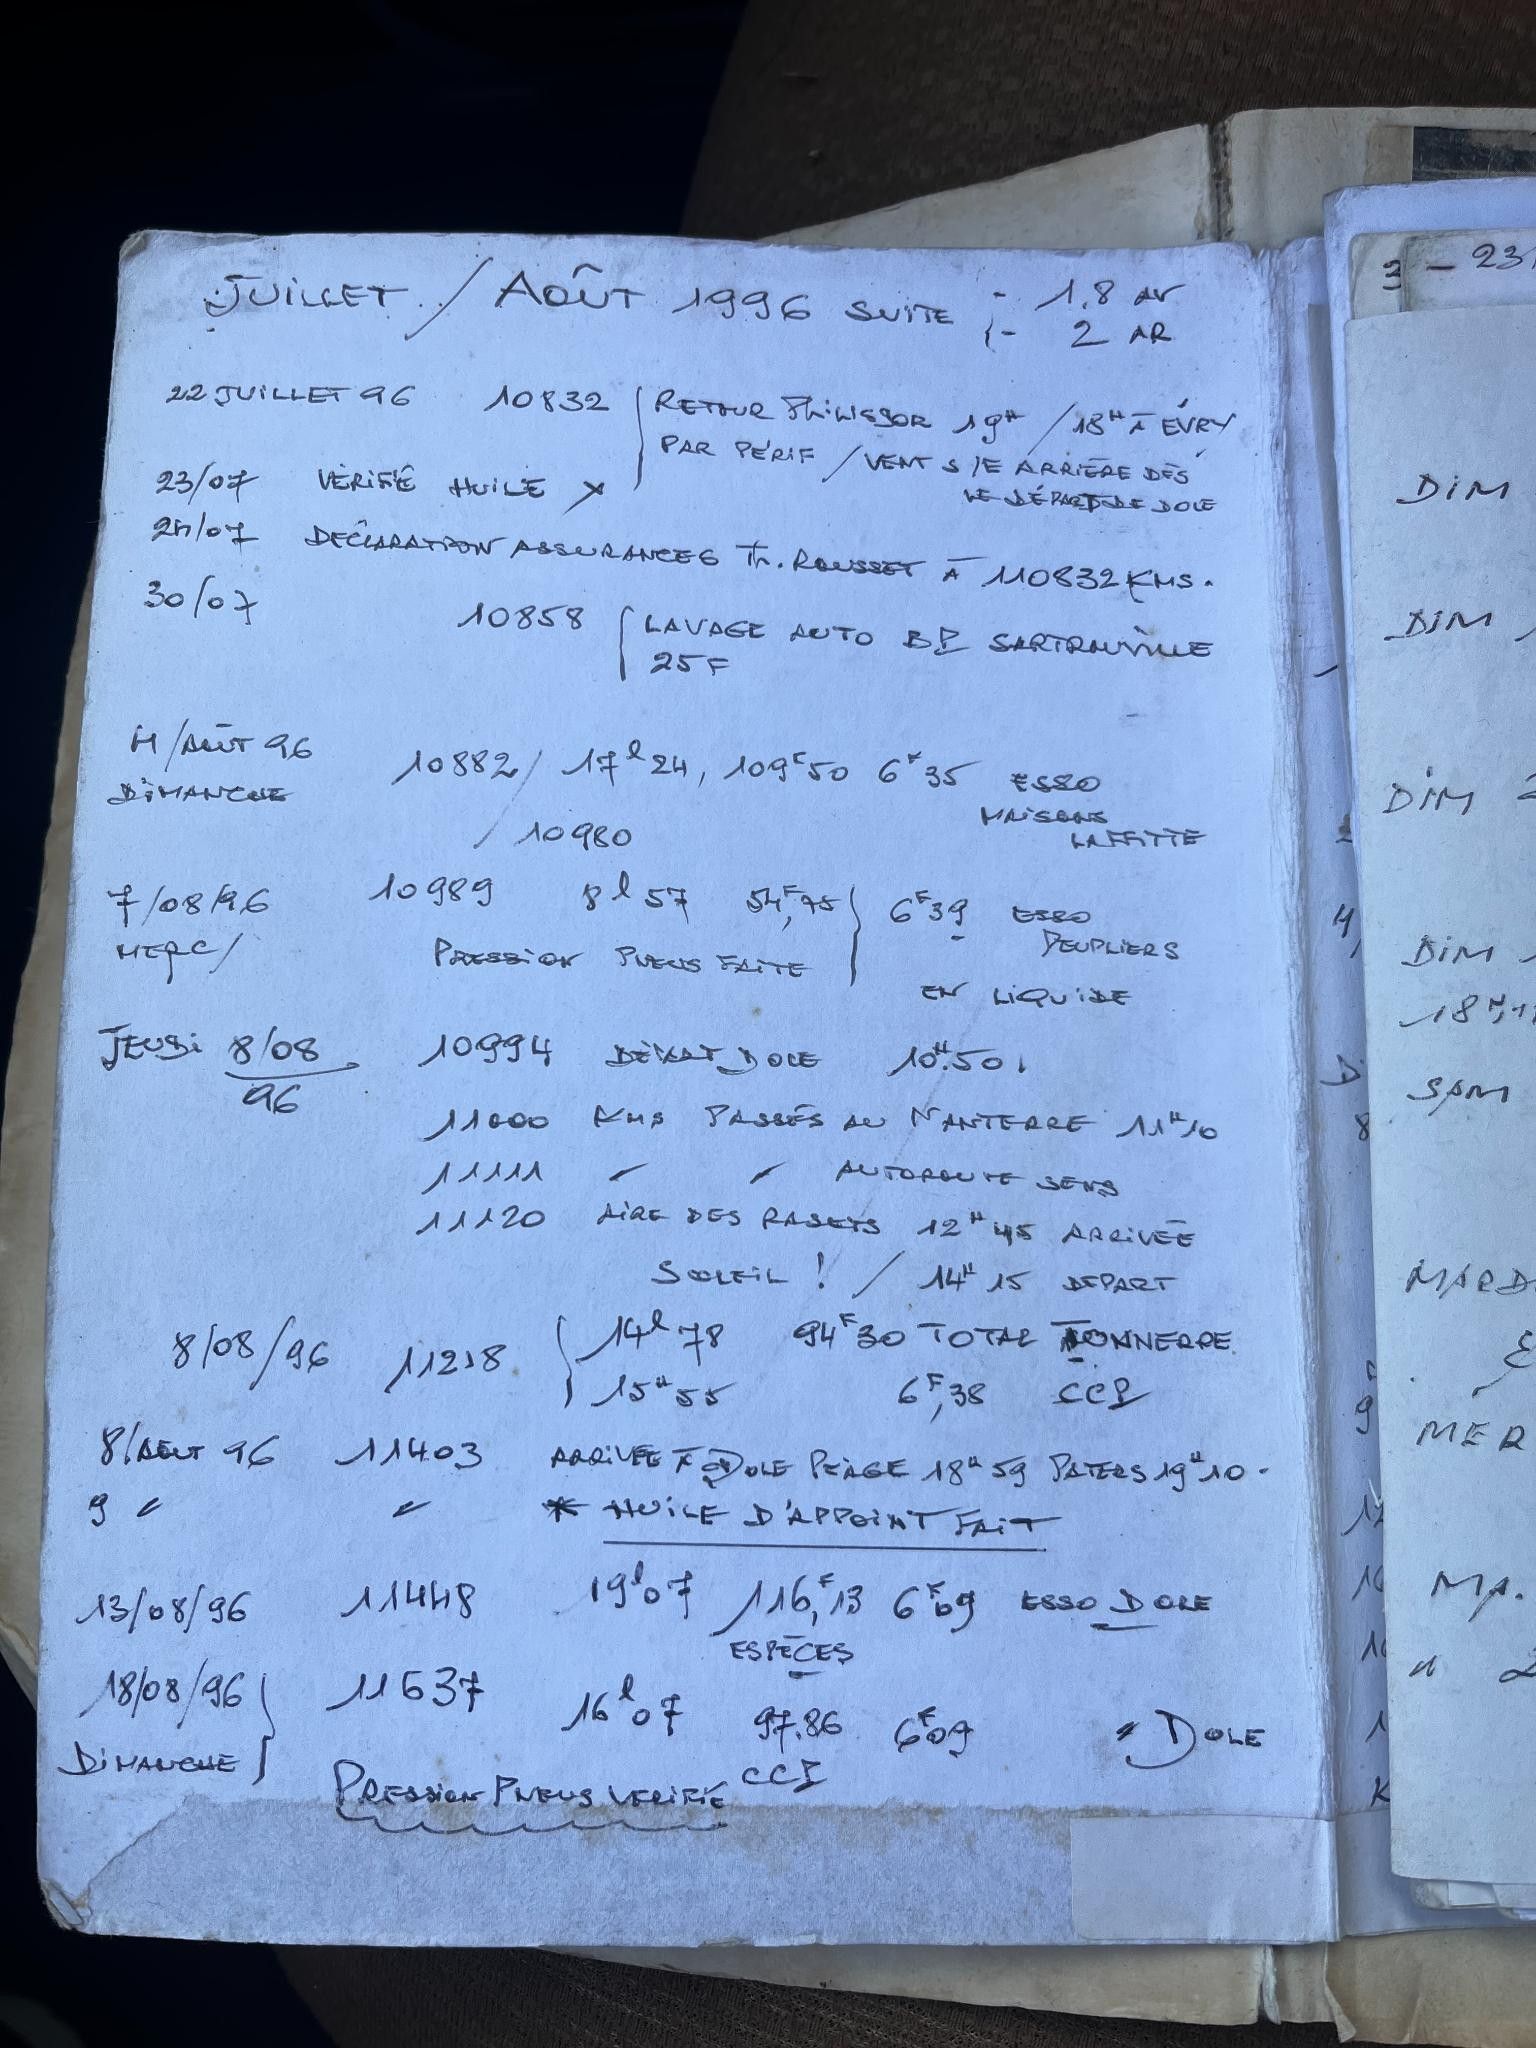 JUILLET / AOÛT 1996 SUITE :- 1,8 AV
- 2 AR
22 JUILLET 96 10832 RETOUR 19H / 18H À ÉVRY
PAR PÉRIF / VENT S/E ARRIÈRE DÈS
LE DÉPART DE DOLE
23/07 VÉRIFIÉ HUILE X
24/07 DÉCLARATION ASSURANCES Th. ROUSSET À 110832 KMS.
30/07 10858 LAVAGE AUTO BP SARTROUVILLE
25F
4/AOÛT 96 10882 / 17l24, 109F50 6F35 ESSO
DIMANCHE MAISONS
/ 10980 LAFFITTE
7/08/96 10989 8l57 54F,75 6F39 ESSO
MERC/ PRESSION PNEUS FAITE PEUPLIERS
EN LIQUIDE
JEUDI 8/08 10994 DÉPART DOLE 10H.50.
96
11000 KMS PASSÉS AU NANTERRE 11H10
11111 " " AUTOROUTE SENS
11120 AIRE DES RASETS 12H45 ARRIVÉE
SOLEIL ! / 14H15 DÉPART
8/08/96 11218 14l78 94F30 TOTAL TONNERRE
15H55 6F,38 CCP
8/AOÛT 96 11403 ARRIVÉE À DOLE PÉAGE 18H59 PATERS 19H10.
9 " " * HUILE D'APPOINT FAIT
13/08/96 11448 19l07 116F,13 6F09 ESSO DOLE
ESPÈCES
18/08/96 11637 16l07 97.86 6F09 " DOLE
DIMANCHE PRESSION PNEUS VERIFIÉ CCP
3 - 23
DIM
DIM
DIM
DIM
18H
SAM
MARD
MER
MA.
"